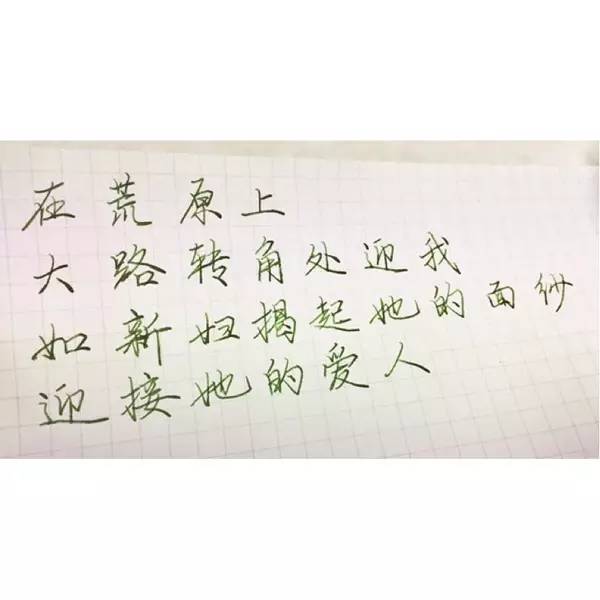 在荒原上
大路转角处迎我
如新妇揭起她的面纱
迎接她的爱人